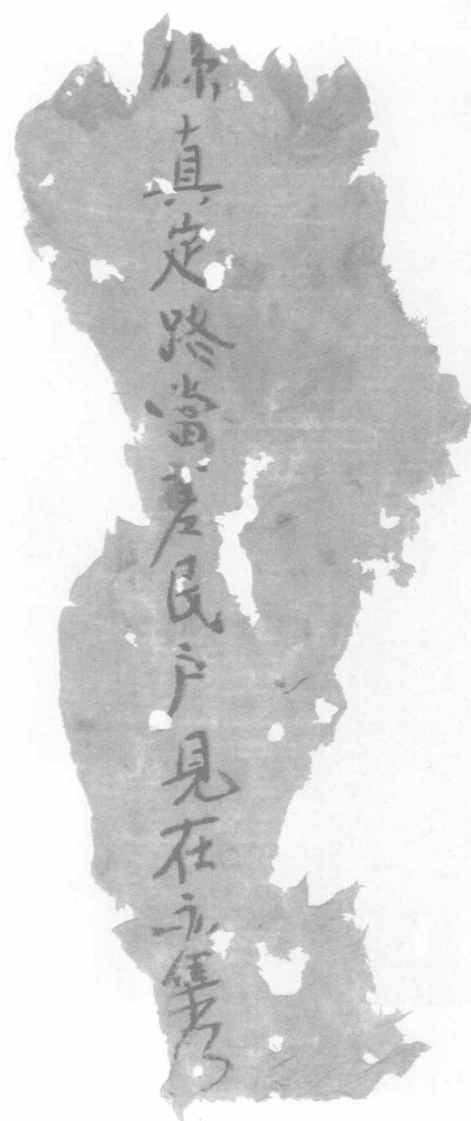 係真定路當差民户見在亦集乃